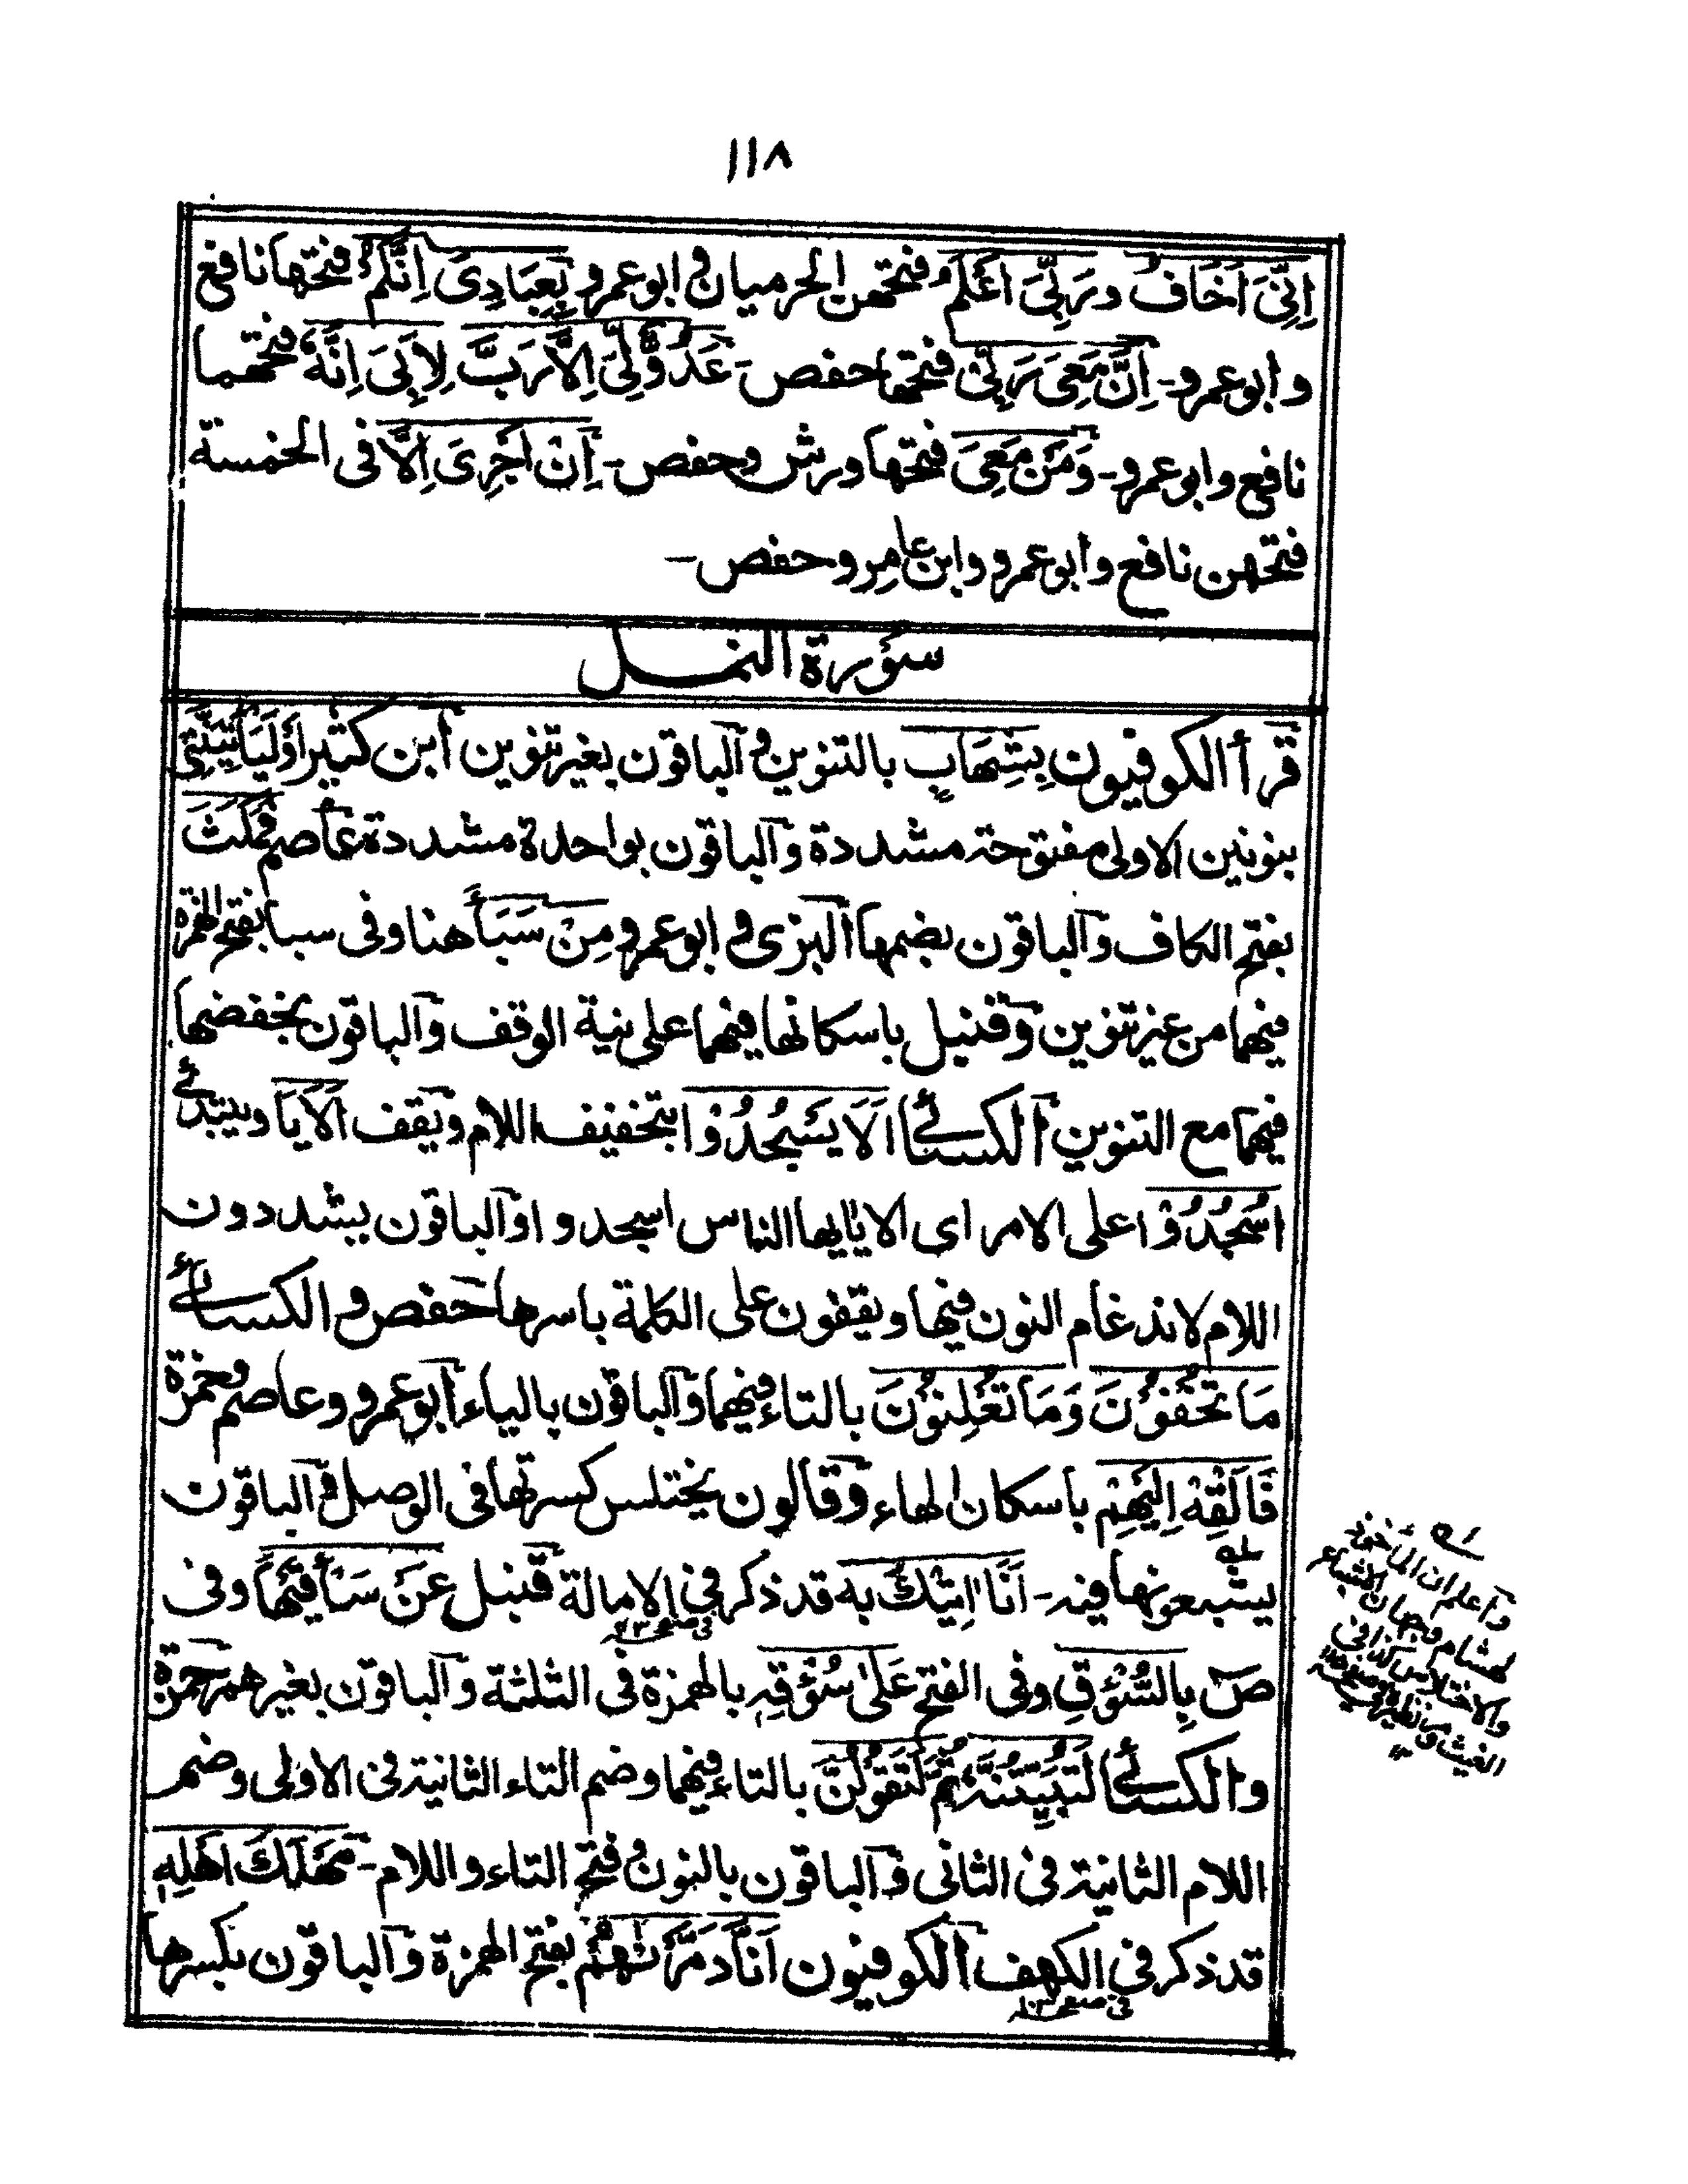 ١١٨
اِنِّىَ اَخَافُ و رَبِّىَ اَعْلَمُ فتحهن الحرميان و ابو عمرو بِعِبَادِىَ اِنَّكُمْ فتحها نافع
و ابو عمرو - اِنَّ مَعِىَ رَبِّىْ فتحها حفص - عَدُوٌّ لِّىَ اِلَّا رَبَّ لِاَبِىَ اِنَّهٗ فتحهما
نافع و ابو عمرو - وَمَنْ مَّعِىَ فتحها ورش و حفص - اِنْ اَجْرِىَ اِلَّا فى الخمسة
فتحهن نافع و ابو عمرو و ابن عامر و حفص -
سورة النمل
قرأ الكوفيون بِشِهَابٍ بالتنوين و الباقون بغير تنوين ابن كثير اَوْلَيَاْتِيَنَّنِىْ
بنونين الاولى مفتوحة مشددة و الباقون بواحدة مشددة عاصم فَمَكَثَ
بفتح الكاف و الباقون بضمها البزى و ابو عمرو مِنْ سَبَأَ هنا و فى سبا بفتح الهمزة
فيهما من غير تنوين و قنبل باسكانها فيهما على نية الوقف و الباقون بخفضها
فيهما مع التنوين الكسائى اَلَا يَسْجُدُوْا بتخفيف اللام و يقف اَلَا يَا و يبتدئ
اُسْجُدُوْا على الامر اى الا يايها الناس اسجدوا و الباقون يشددون
اللام لاندغام النون فيها و يقفون على الكلمة باسرها حفص و الكسائى
مَا تُخْفُوْنَ وَمَا تُعْلِنُوْنَ بالتاء فيهما و الباقون بالياء ابو عمرو و عاصم و حمزة
فَاَلْقِهْ اِلَيْهِمْ باسكان الهاء و قالون يختلس كسرتها فى الوصل و الباقون
يشبعونها فيه - اَنَا اٰتِيْكَ بِهٖ قد ذكر فى الامالة قنبل عَنْ سَأْقَيْهَا و فى
صٓ بِالسُّؤْقِ و فى الفتح عَلٰى سُؤْقِهٖ بالهمزة فى الثلثة و الباقون بغير همز حمزة
و الكسائى لَتُبَيِّتُنَّهٗ ثُمَّ لَتَقُوْلُنَّ بالتاء فيهما و ضم التاء الثانية فى الاولى و ضم
اللام الثانية فى الثانى و الباقون بالنون و فتح التاء و اللام - مَهْلَكَ اَهْلِهٖ
قد ذكر فى الكهف الكوفيون اَنَّا دَمَّرْنٰهُمْ بفتح الهمزة و الباقون بكسرها
و اعلم ان المأخوذ
لهشام وجهان الاشباع
و الاختلاس كذا فى
الغيث